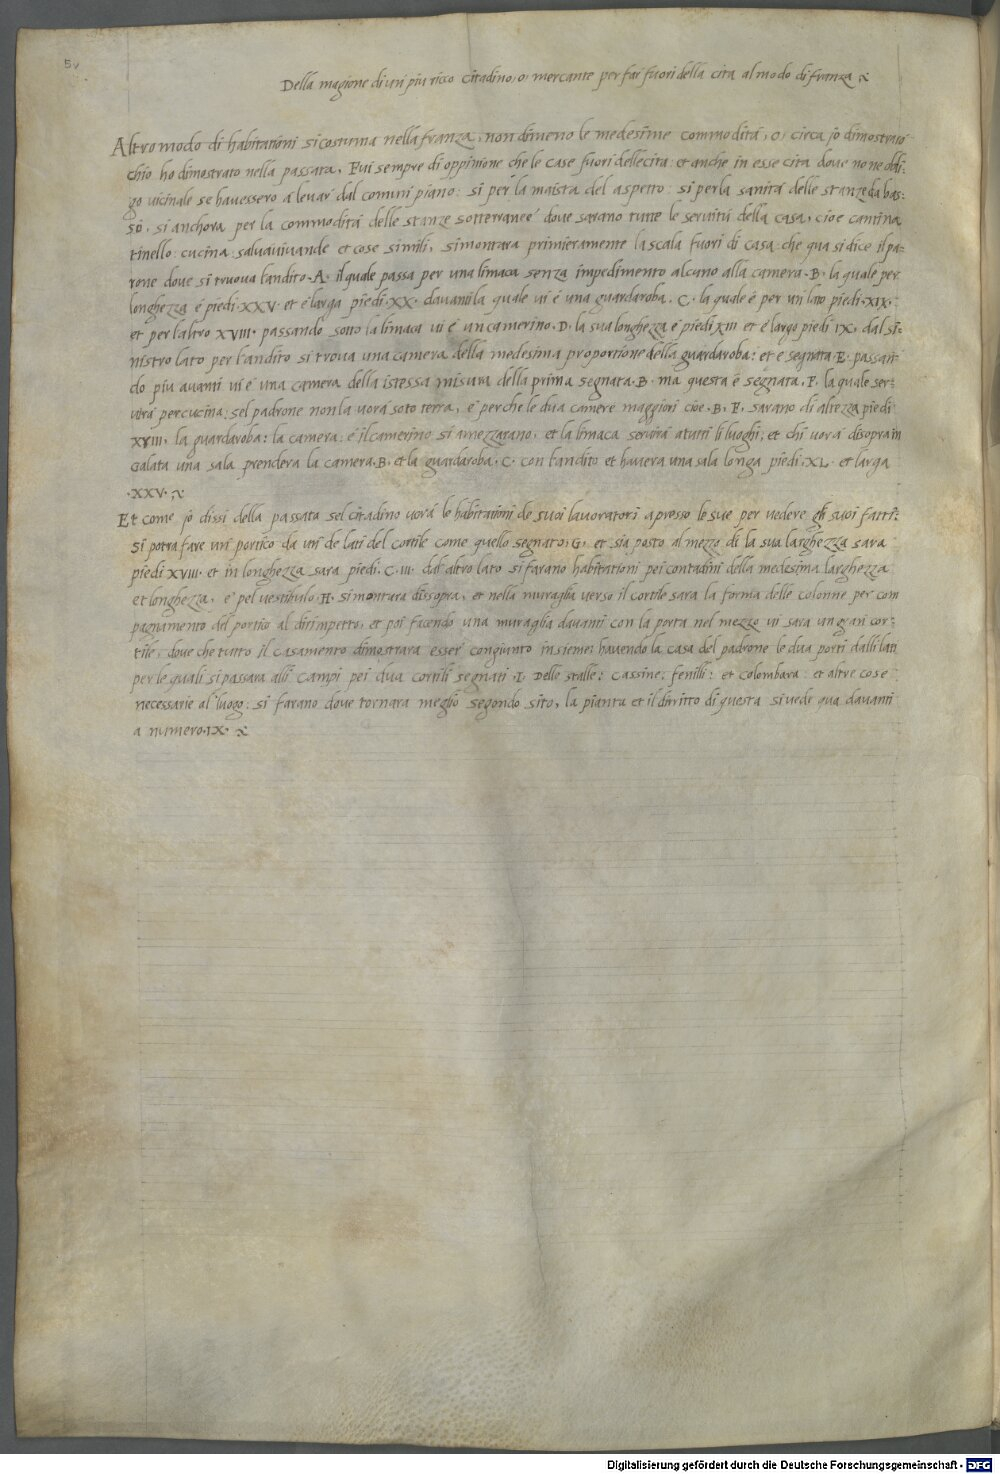 5v
Della magione di un piu ricco Citadino, o, mercante per far fuori della cita al modo di franza
Altro modo di habitationi si costuma nella franza, non dimeno le medesime commodità, o, circa jo dimostrarò
chio ho dimostrato nella passata, Fui sempre di oppinione che le case fuori delle cità: et anche in esse cità dove no ne obli-
go vicinale se havessero a levar dal comun piano: si per la maistà del aspetto: si per la sanità delle stanze da bas-
so, si anchora per la commodità delle stanze sotterranee dove sarano tutte le servitù della casa, cioe cantina
tinello: cucina: salvavivande et cose simili, si montarà primieramente la scala fuori di casa: che qua si dice il pa-
rone dove si truova l'andito .A. il quale passa per una limaca senza impedimento alcuno alla camera .B. la quale per
longhezza è piedi .XXV. et è larga piedi .XX. davanti la quale vi è una guardaroba .C. la quale è per un lato piedi .XIX.
et per l'altro XVIII. passando sotto la limaca vi è un camerino .D. la sua longhezza è piedi XIII et è largo piedi IX, dal si-
nistro lato per l'andito si trova una camera della medesima proportione della guardaroba: et è segnata .E. passan-
do piu avanti vi è una camera della istessa misura della prima segnata .B. ma questa è segnata .F. la quale ser-
virà per cucina: se'l padrone non la vorà soto terra, e perche le dua camere maggiori cioe .B. F. sarano di altezza piedi
XVIII, la guardaroba: la camera: e il camerino si amezzarano, et la limaca servirà a tutti li luoghi, et chi vorà disopra in
galata una sala prenderà la camera .B. et la guardaroba .C. con l'andito et haverà una sala longa piedi .XL. et larga
.XXV.
Et come jo dissi della passata se'l citadino vorà le habitationi de suoi lavoratori apresso le sue per vedere gli suoi fatti:
si potrà fare un portico da un de lati del cortile come quello segnato .G. et sia posto al mezzo di la sua larghezza sarà
piedi XVIII. et in longhezza sarà piedi .C.III. dal altro lato si farano habitationi pei contadini della medesima larghezza
et longhezza, e pel vestibulo .H. si montarà dissopra, et nella muraglia verso il cortile sarà la forma delle colonne per com
pagnamento del portico al dirimpetto, et poi facendo una muraglia davanti con la porta nel mezzo vi sarà un gran cor-
tile, dove che tutto il casamento dimostrarà esser congiunto insieme: havendo la casa del padrone le dua porti dalli lati
per le quali si passarà alli campi pei dua cortili segnati .I. Delle stalle: Cassine: fenilli: et colombara: et altre cose
necessarie al luogo: si farano dove tornarà meglio segondo sito, la pianta et il diritto di questa si vede qua davanti
a numero .IX.
Digitalisierung gefördert durch die Deutsche Forschungsgemeinschaft - DFG